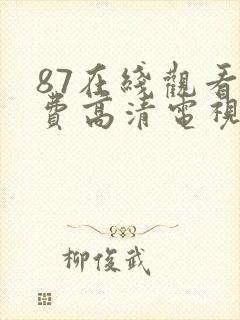 87在綫觀看
費高清電視
柳俊武